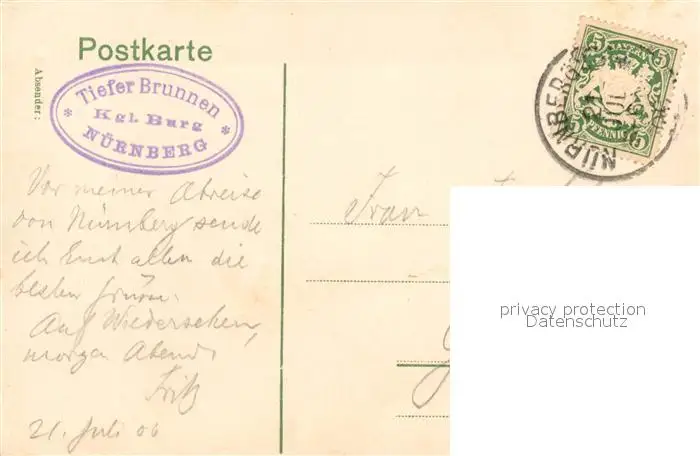 Postkarte
Absender:
Tiefer Brunnen
Kgl. Burg
NÜRNBERG
5 BAYERN 5
5 PFENNIG 5
NÜRNBERG
21 JUL
Vor meiner Abreise
von Nürnberg sende
ich Euch allen die
besten Grüsse.
Auf Wiedersehen,
morgen Abend.
Fritz
21. Juli 06
Frau
privacy protection
Datenschutz